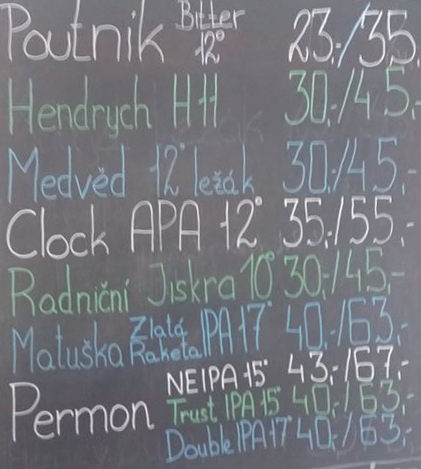 Poutník Bitter 12° 23,-/35,
Hendrych H11 30,-/45,-
Medvěd 12° ležák 30,-/45,-
Clock APA 12° 35,-/55,-
Radniční Jiskra 10° 30,-/45,-
Matuška Zlatá Raketa IPA 17° 40,-/63,-
Permon NEIPA 15° 43,-/67,-
Trust IPA 15° 40,-/63,-
Double IPA 17° 40,-/63,-